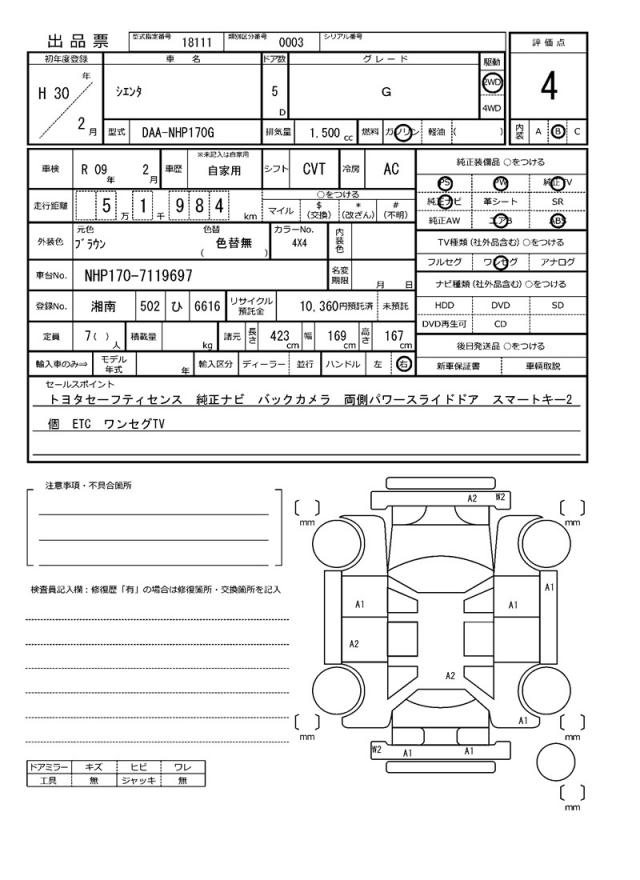 出品票 型式指定番号 18111 類別区分番号 0003 シリアル番号
評価点
4
内装 A B C
初年度登録 車 名 ドア数 グレード 駆動
H 30 年 2 月 シエンタ 5 D G 2WD 4WD
型式 DAA-NHP170G 排気量 1.500 cc 燃料 ガソリン 軽油 ( )
車検 R 09 年 2 月 車歴 ※未記入は自家用 自家用 シフト CVT 冷房 AC
走行距離 5 万 1 千 9 8 4 km
○をつける
マイル $ (交換) * (改ざん) # (不明)
外装色 元色 ブラウン 色替 ( 色替無 ) カラーNo. 4X4 内装色
車台No. NHP170-7119697 名変期限 月 日
登録No. 湘南 502 ひ 6616 リサイクル預託金 10,360円預託済 未預託
定員 7( ) 人 積載量 kg 諸元 長さ 423 cm 幅 169 cm 高さ 167 cm
輸入車のみ⇒ モデル年式 年 輸入区分 ディーラー 並行 ハンドル 左 右
純正装備品 ○をつける
PS PW 純正TV
純正ナビ 革シート SR
純正AW エアB ABS
TV種類 (社外品含む) ○をつける
フルセグ ワンセグ アナログ
ナビ種類 (社外品含む) ○をつける
HDD DVD SD
DVD再生可 CD
後日発送品 ○をつける
新車保証書 車輌取説
セールスポイント
トヨタセーフティセンス 純正ナビ バックカメラ 両側パワースライドドア スマートキー2
個 ETC ワンセグTV
注意事項・不具合箇所
検査員記入欄：修復歴「有」の場合は修復箇所・交換箇所を記入
ドアミラー キズ ヒビ ワレ
工具 無 ジャッキ 無
A2 W2
mm mm
A1 A1 A1
A2
A2
A1
mm mm
W2 A1 A1
mm